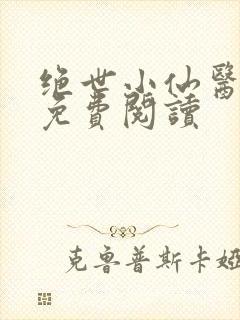 绝世小仙醫
免費閱讀
克鲁普斯卡娅